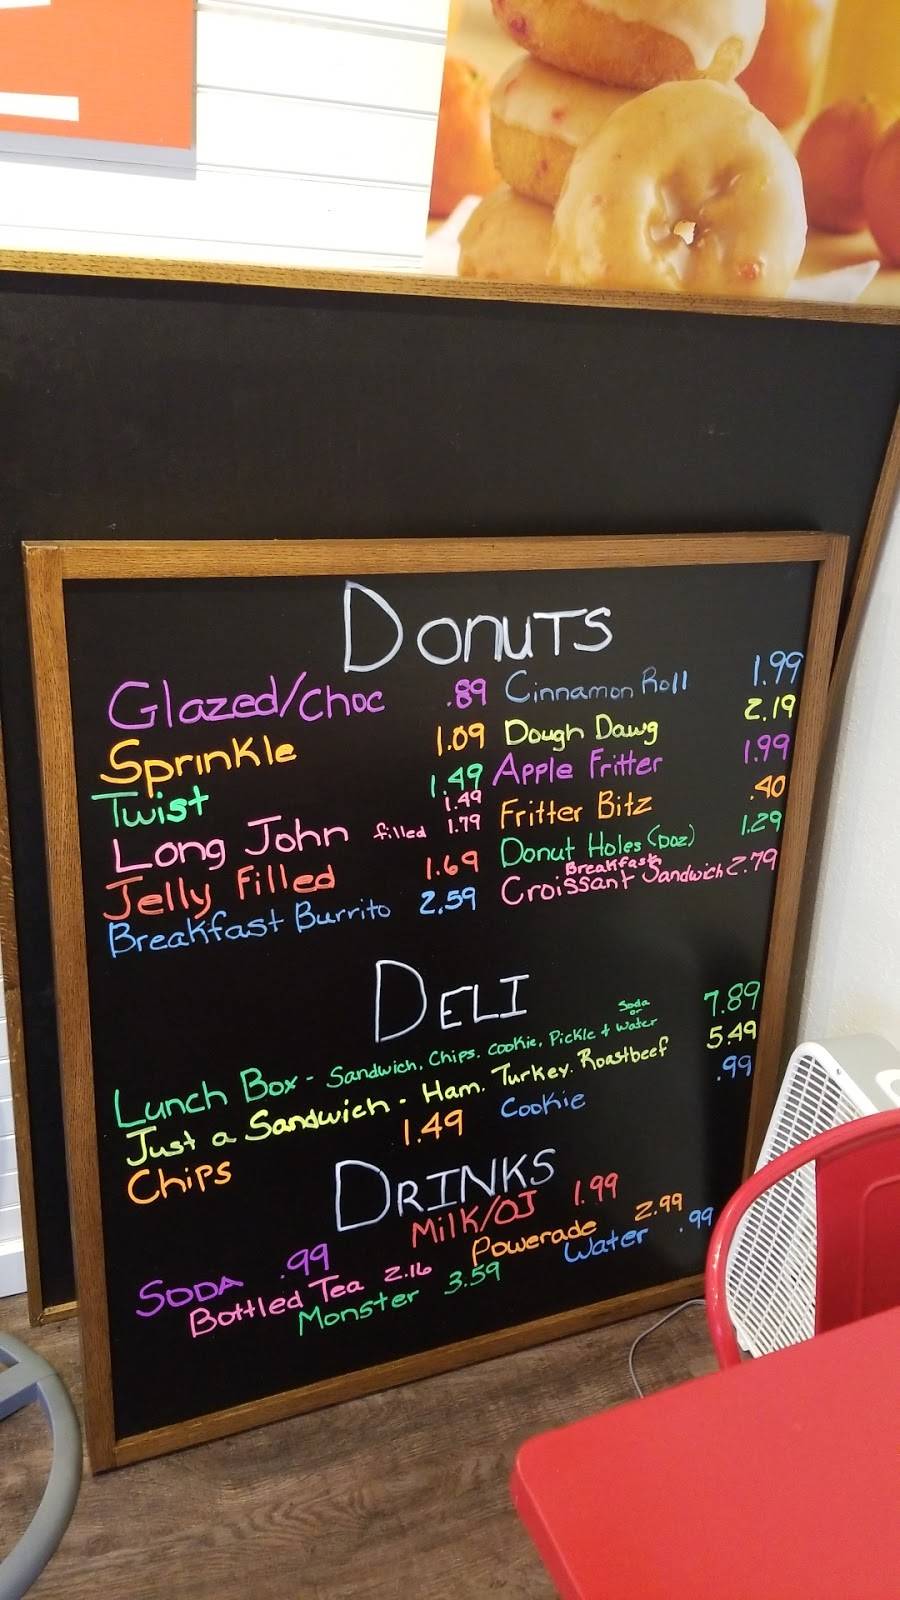 DONUTS
Glazed/Choc .89
Sprinkle 1.09
Twist 1.49
Long John 1.49
filled 1.79
Jelly Filled 1.69
Breakfast Burrito 2.59
Cinnamon Roll 1.99
Dough Dawg 2.19
Apple Fritter 1.99
Fritter Bitz .40
Donut Holes (Doz) 1.29
Breakfast
Croissant Sandwich 2.79
DELI
Lunch Box - Sandwich, Chips. Cookie, Pickle + Soda or Water 7.89
Just a Sandwich - Ham. Turkey. Roastbeef 5.49
Chips 1.49 Cookie .99
DRINKS
Milk/OJ 1.99
Soda .99 Powerade 2.99
Bottled Tea 2.16 Water .99
Monster 3.59